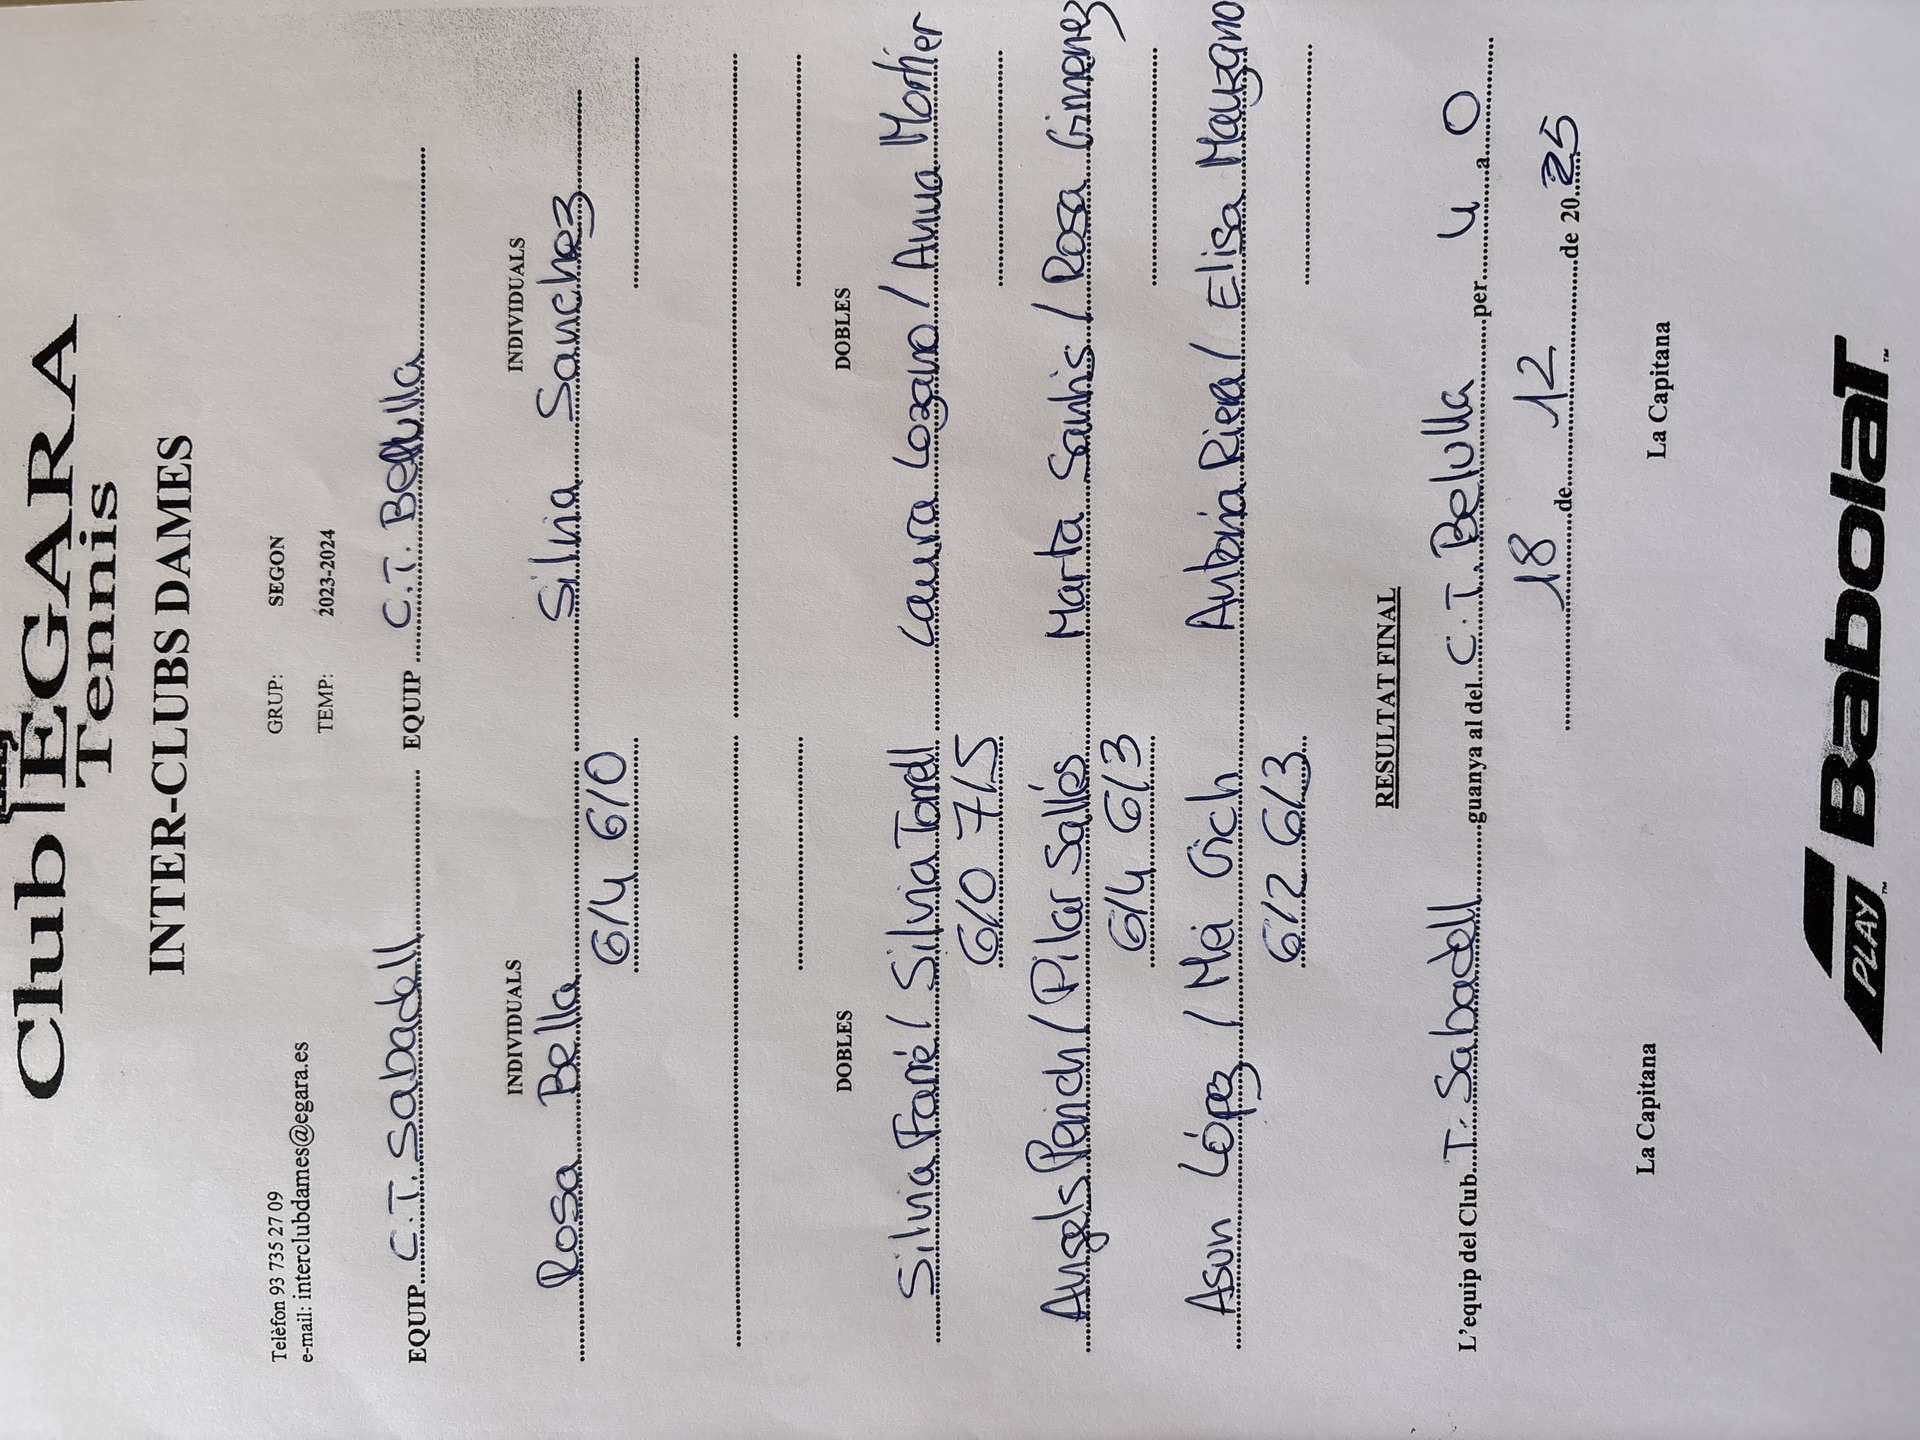 Club EGARA
Tennis
INTER-CLUBS DAMES
Telèfon 93 735 27 09
e-mail: interclubdames@egara.es
GRUP: SEGON
TEMP: 2023-2024
EQUIP C.T. Sabadell EQUIP C.T. Belulla
INDIVIDUALS INDIVIDUALS
Rosa Bella Silvia Sanchez
6/4 6/0
DOBLES DOBLES
Silvia Farré / Silvia Torrell Laura Lozano / Anna Mortier
6/0 7/5
Angels Perich / Pilar Sallés Marta Sanhis / Rosa Gimenez
6/4 6/3
Asun López / Mei Gich Antonia Riera / Elisa Manzano
6/2 6/3
RESULTAT FINAL
L'equip del Club T. Sabadell guanya al del C.T. Belulla per 4 a 0
18 de 12 de 2025
La Capitana La Capitana
PLAY™ Babolat™